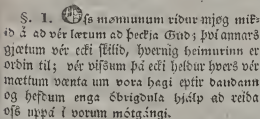 §. 1. Oss mǫnnunum rídur mjǫg mik-
id á ad vér lærum ad þeckja Gud; því annars
gjætum vér ecki skilid, hvernig heimurinn er
ordin til; vér vissum þá ecki heldur hvørs vér
mættum vænta um vora hagi eptir daudann
og hefdum enga óbrigdula hjálp ad reida
oss uppá í vorum mótgángi.